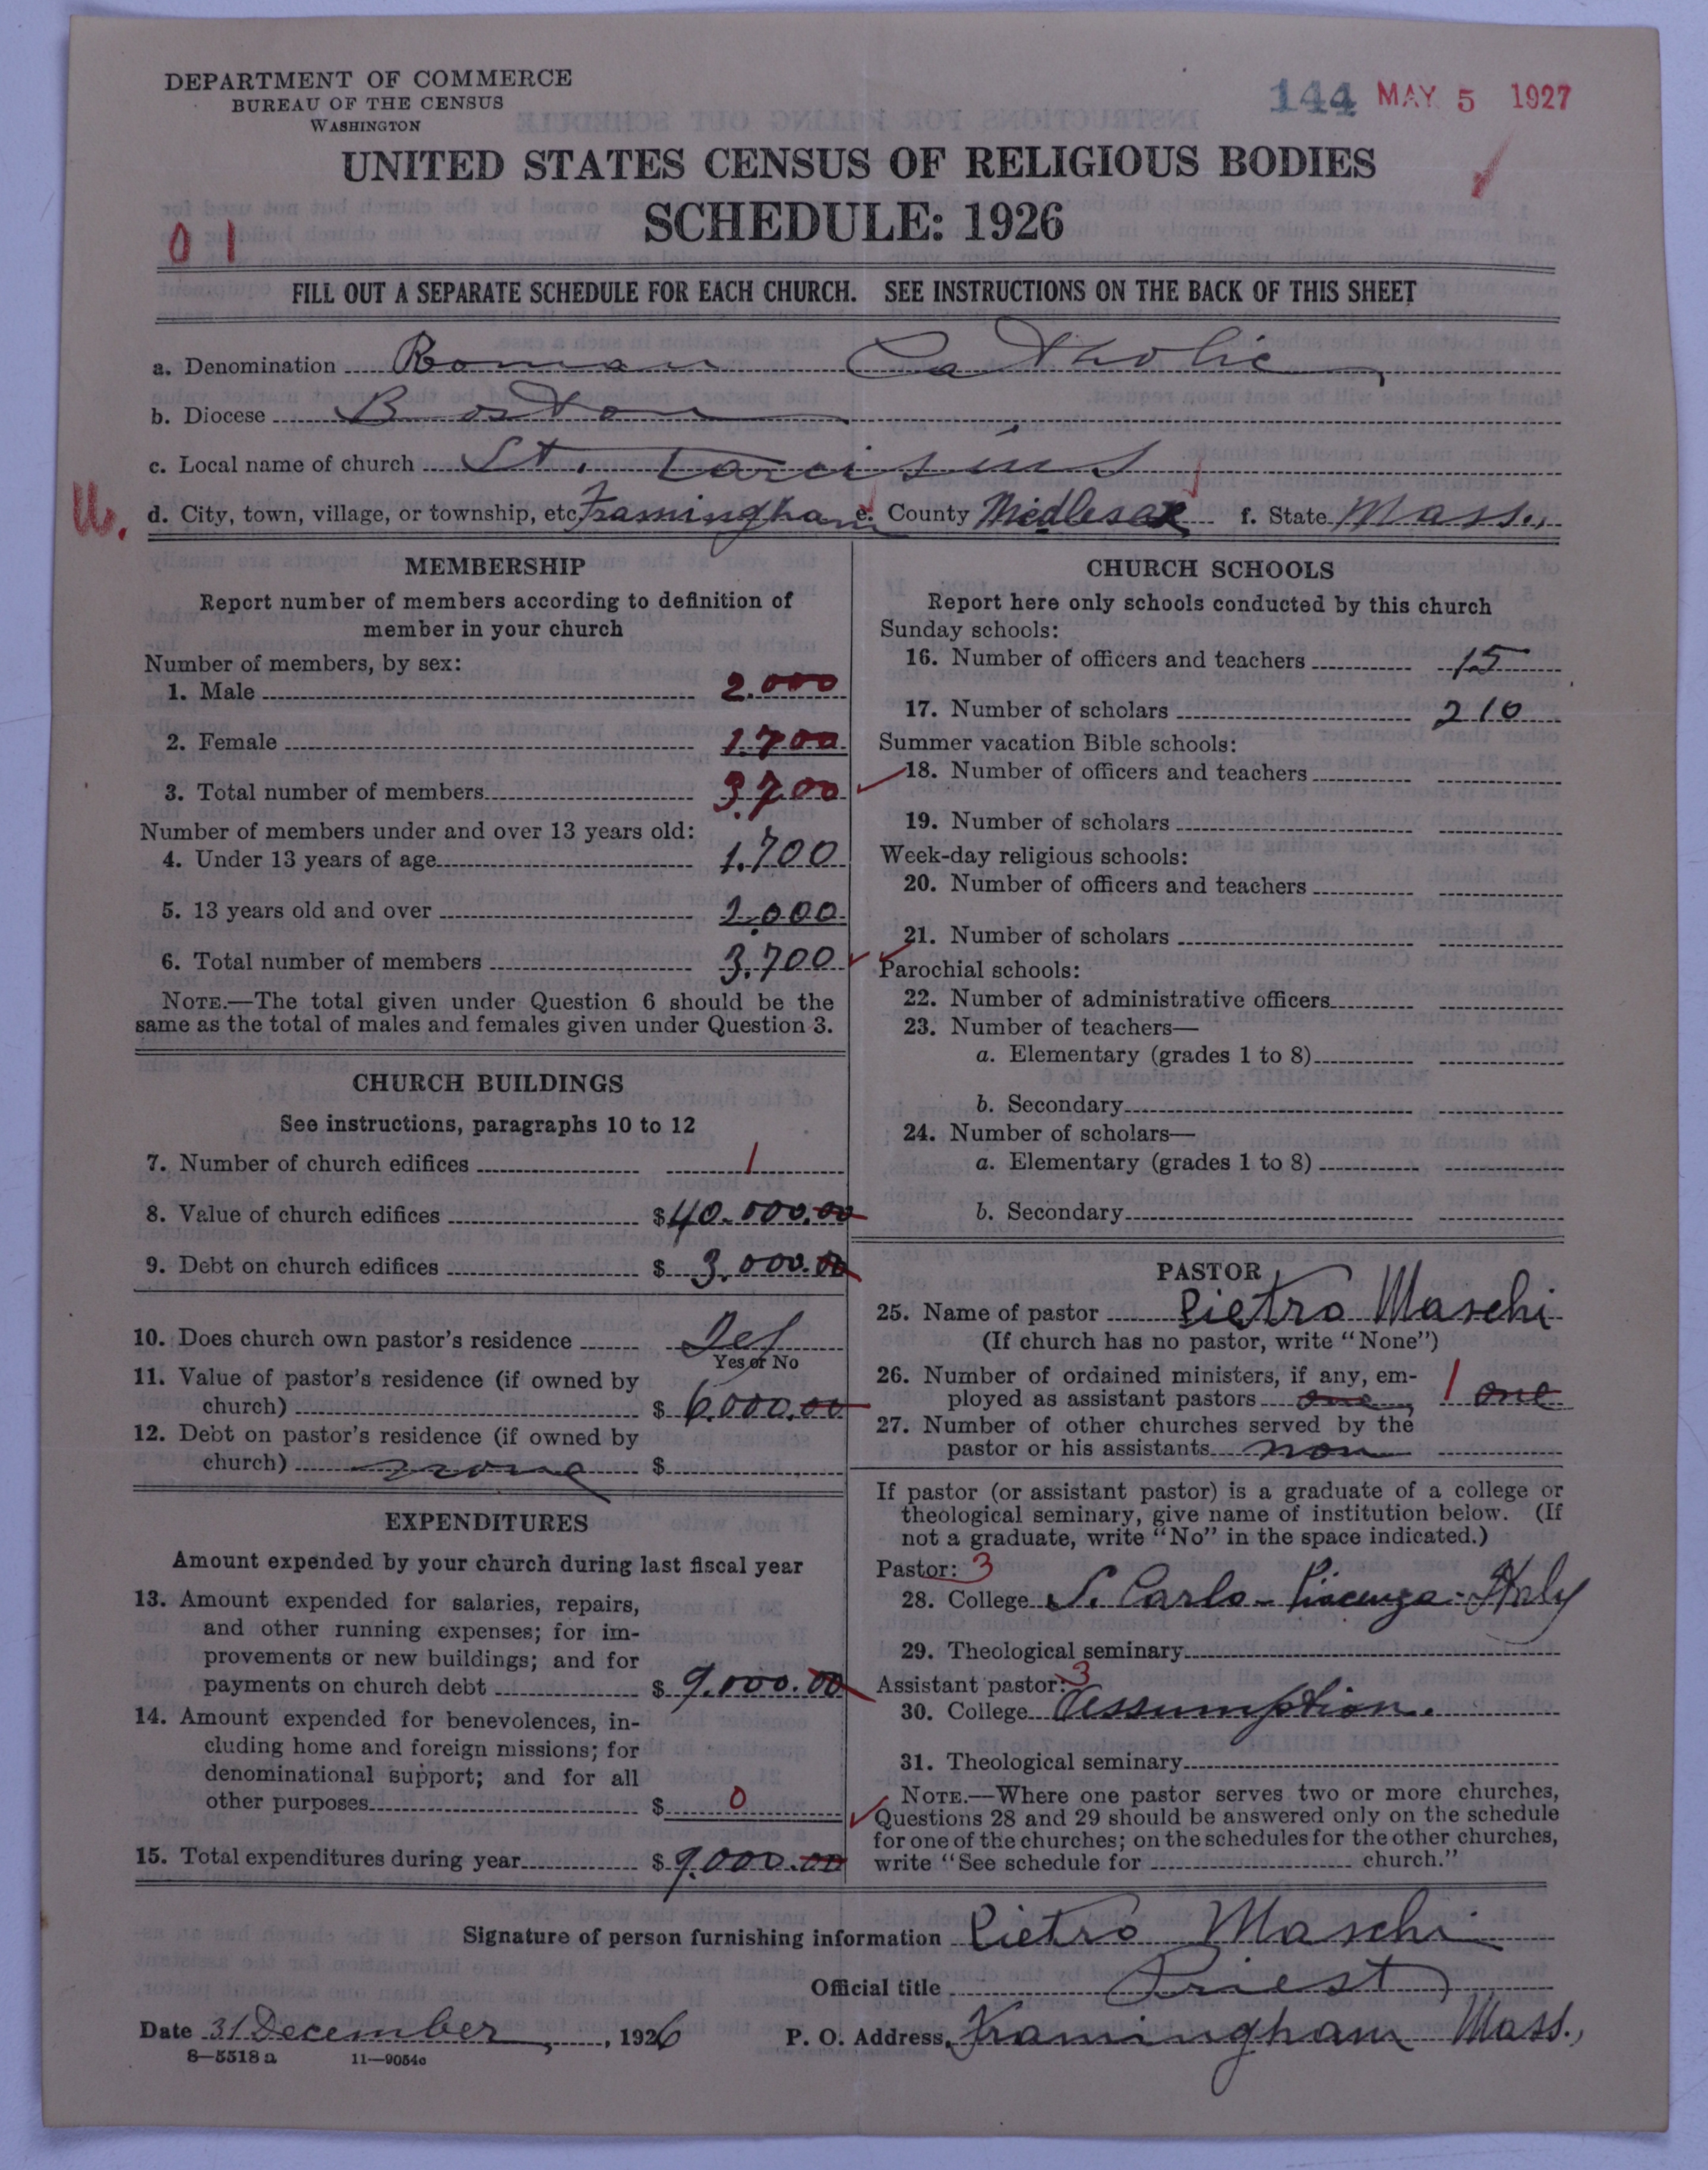 DEPARTMENT OF COMMERCE
BUREAU OF THE CENSUS
WASHINGTON
144 MAY 5 1927
UNITED STATES CENSUS OF RELIGIOUS BODIES
SCHEDULE: 1926
0 1
FILL OUT A SEPARATE SCHEDULE FOR EACH CHURCH. SEE INSTRUCTIONS ON THE BACK OF THIS SHEET
a. Denomination Roman Catholic
b. Diocese Boston
c. Local name of church St. Tarcisius
U. d. City, town, village, or township, etc. Framingham e. County Midlesex f. State Mass.
MEMBERSHIP
Report number of members according to definition of
member in your church
Number of members, by sex:
1. Male 2.000
2. Female 1.700
3. Total number of members 3.700
Number of members under and over 13 years old:
4. Under 13 years of age 1.700
5. 13 years old and over 2.000
6. Total number of members 3.700
NOTE.—The total given under Question 6 should be the
same as the total of males and females given under Question 3.
CHURCH BUILDINGS
See instructions, paragraphs 10 to 12
7. Number of church edifices 1
8. Value of church edifices $40.000.00
9. Debt on church edifices $ 3.000.00
10. Does church own pastor's residence Yes
Yes or No
11. Value of pastor's residence (if owned by
church) $ 6.000.00
12. Debt on pastor's residence (if owned by
church) none $
EXPENDITURES
Amount expended by your church during last fiscal year
13. Amount expended for salaries, repairs,
and other running expenses; for im-
provements or new buildings; and for
payments on church debt $ 9.000.00
14. Amount expended for benevolences, in-
cluding home and foreign missions; for
denominational support; and for all
other purposes $ 0
15. Total expenditures during year $ 9.000.00
CHURCH SCHOOLS
Report here only schools conducted by this church
Sunday schools:
16. Number of officers and teachers 15
17. Number of scholars 210
Summer vacation Bible schools:
18. Number of officers and teachers
19. Number of scholars
Week-day religious schools:
20. Number of officers and teachers
21. Number of scholars
Parochial schools:
22. Number of administrative officers
23. Number of teachers—
a. Elementary (grades 1 to 8)
b. Secondary
24. Number of scholars—
a. Elementary (grades 1 to 8)
b. Secondary
PASTOR
25. Name of pastor Pietro Maschi
(If church has no pastor, write "None")
26. Number of ordained ministers, if any, em-
ployed as assistant pastors one 1 one
27. Number of other churches served by the
pastor or his assistants non
If pastor (or assistant pastor) is a graduate of a college or
theological seminary, give name of institution below. (If
not a graduate, write "No" in the space indicated.)
Pastor: 3
28. College S. Carlo - Piacenza - Italy
29. Theological seminary
Assistant pastor: 3
30. College Assumption.
31. Theological seminary
NOTE.—Where one pastor serves two or more churches,
Questions 28 and 29 should be answered only on the schedule
for one of the churches; on the schedules for the other churches,
write "See schedule for church."
Signature of person furnishing information Pietro Maschi
Official title Priest
Date 31 December, 1926 P. O. Address, Framingham Mass.,
8—5518a 11—9054c